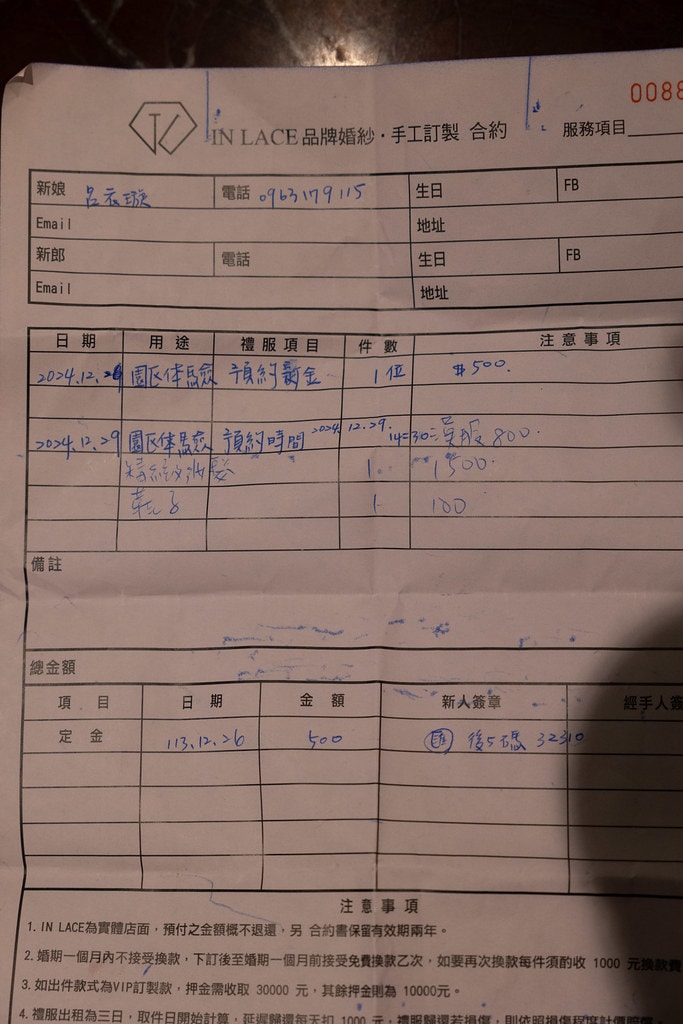 0088
IN LACE 品牌婚紗·手工訂製 合約 服務項目
新娘 呂衣璇 電話 0963179115 生日 FB
Email 地址
新郎 電話 生日 FB
Email 地址
日期 用途 禮服項目 件數 注意事項
2024.12.26 園区体驗 預約訂金 1位 $500.
2024.12.29 園区体驗 預約時間 2024.12.29. 14:30 漢服 800.
1. 1500.
1 100
備註
總金額
項目 日期 金額 新人簽章 經手人簽
定金 113.12.26 500 匯 後5碼 32310
注意事項
1. IN LACE為實體店面,預付之金額概不退還,另 合約書保留有效期兩年。
2. 婚期一個月內不接受換款,下訂後至婚期一個月前接受免費換款乙次,如要再次換款每件須酌收 1000 元換款費
3. 如出件款式為VIP訂製款,押金需收取 30000 元,其餘押金則為 10000元。
4. 禮服出租為三日,取件日開始計算,延遲歸還每天扣 1000 元,禮服歸還若損傷,則依照損傷程度計價賠償。